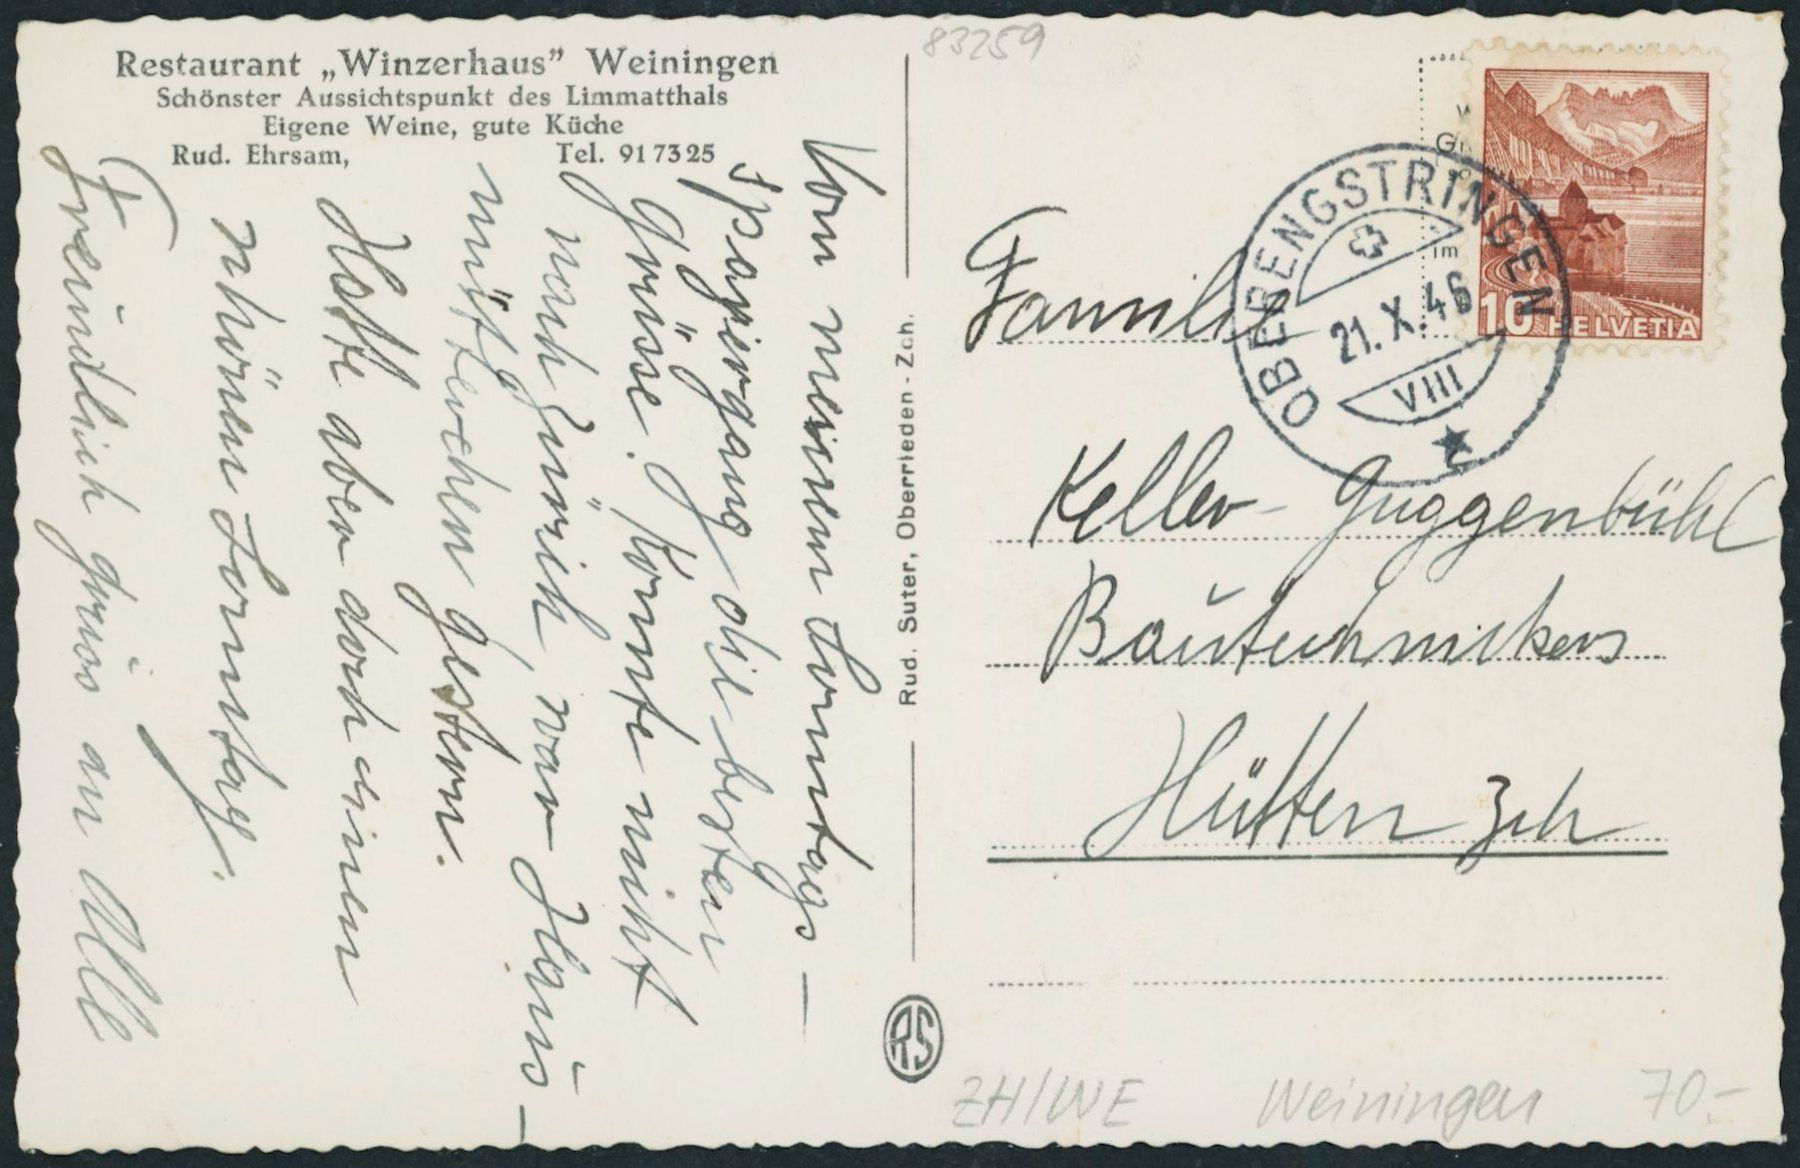 Restaurant „Winzerhaus” Weiningen
Schönster Aussichtspunkt des Limmatthals
Eigene Weine, gute Küche
Rud. Ehrsam, Tel. 91 73 25
Von meinem Sonntags-
spaziergang die besten
Grüsse. Konnte nicht
nach Zürich, war Haus-
mütterchen gestern.
Hatte aber doch einen
schönen Sonntag.
Freundlich grüss an Alle
Rud. Suter, Oberrieden - Zch.
RS
83259
10 HELVETIA
OBERENGSTRINGEN
21. X. 46
VIII
Familie
Keller-Guggenbühl
Bautechnikers
Hütten Zch
ZH/WE Weiningen 70.-